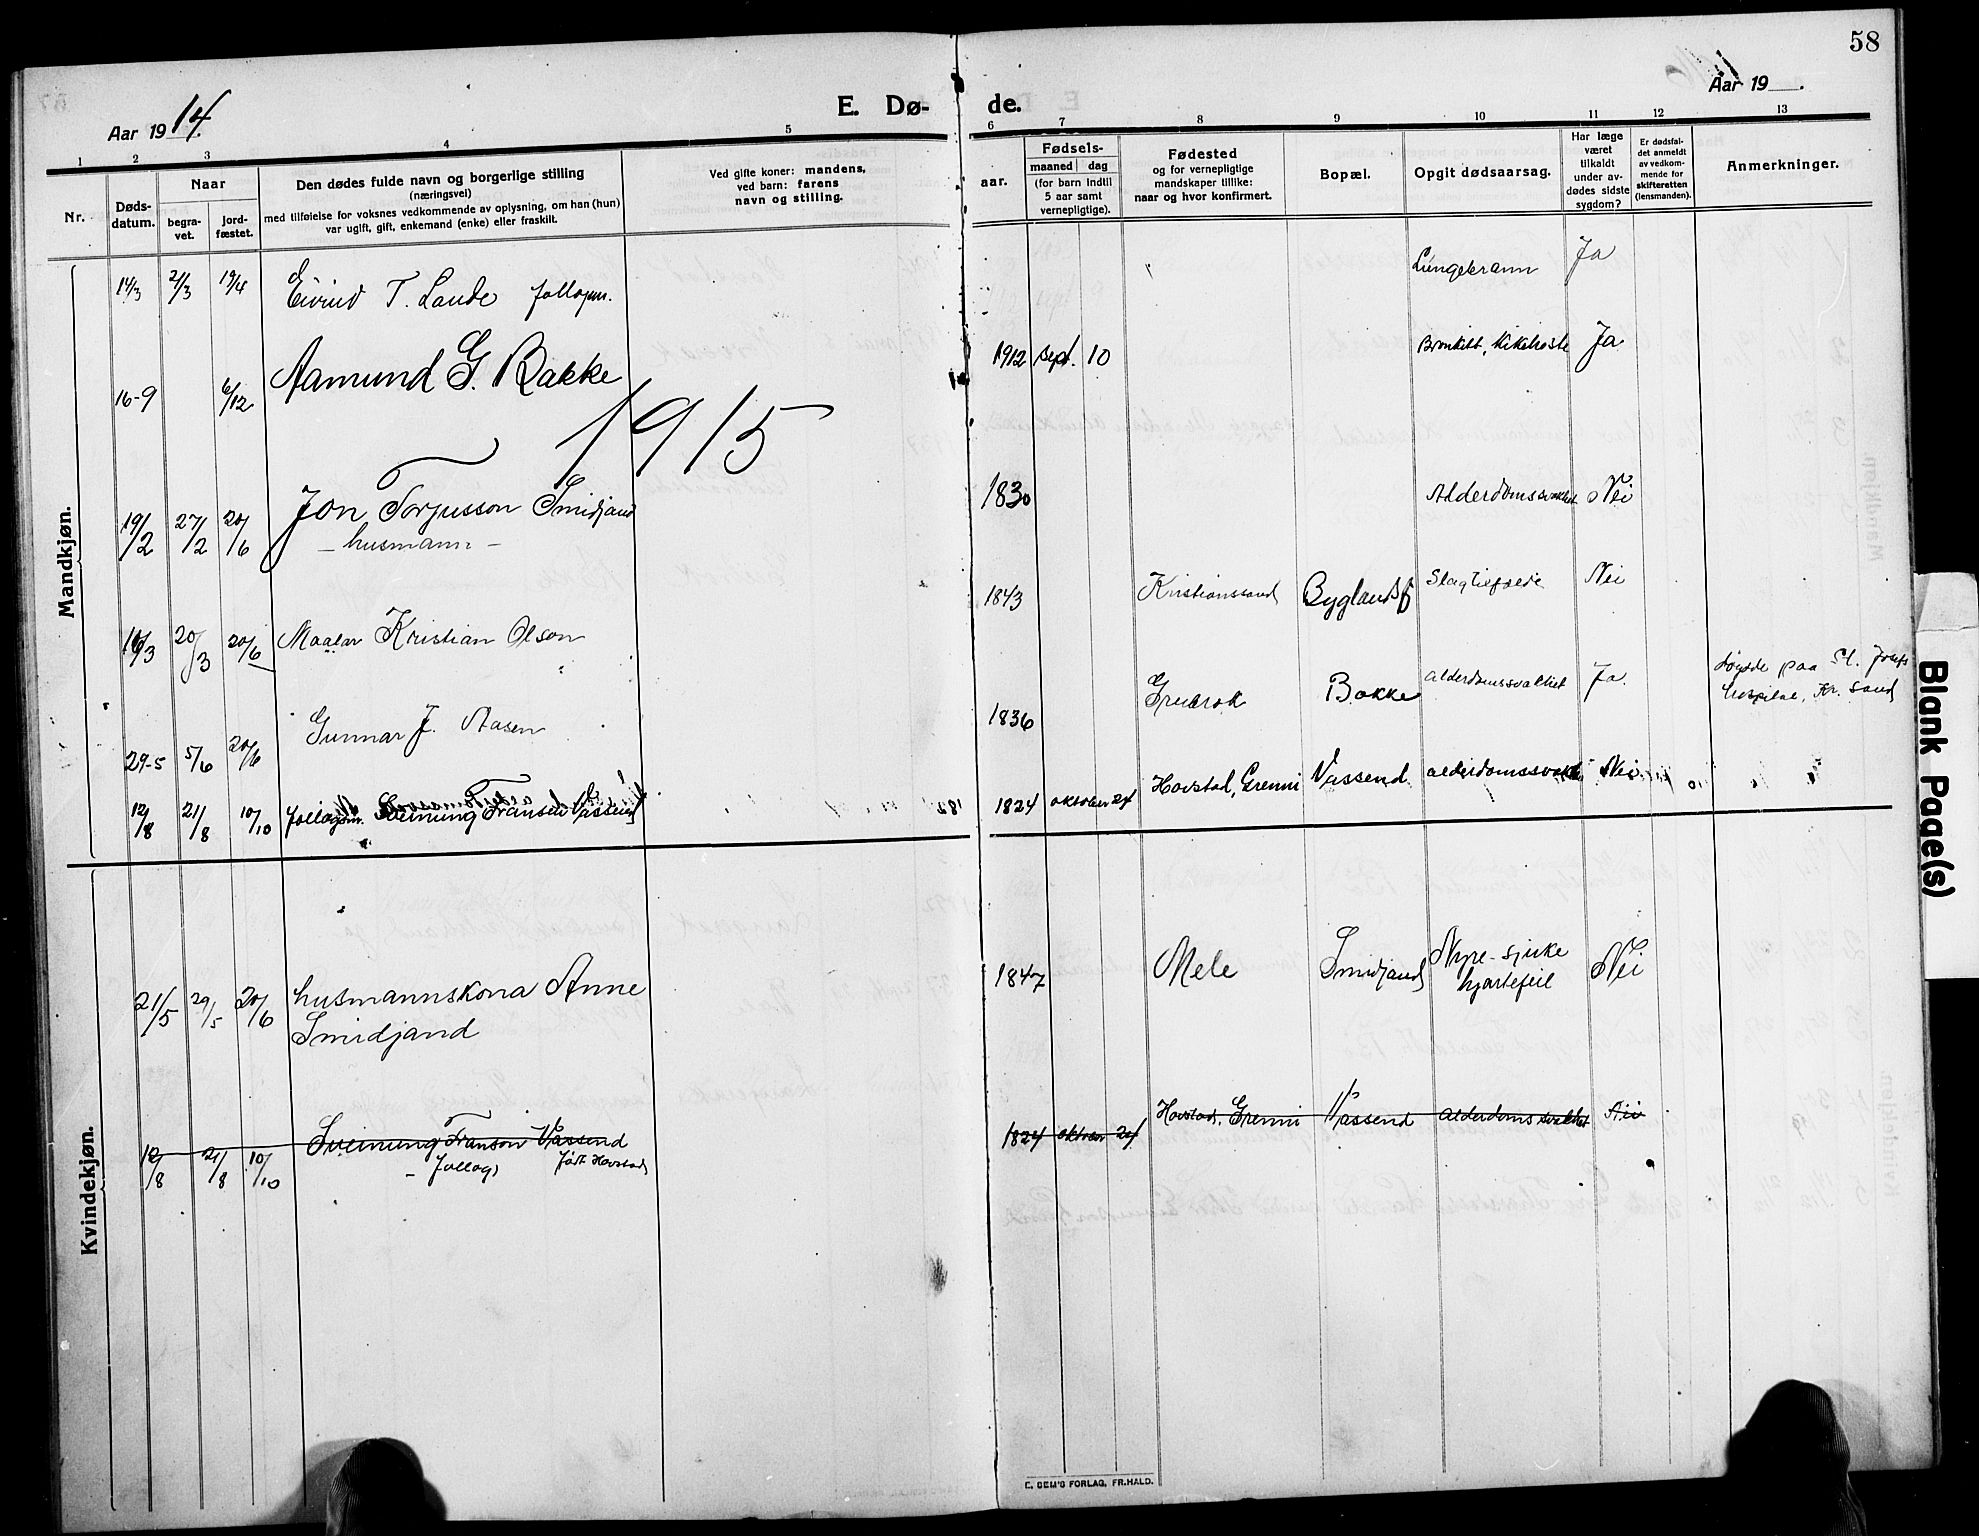 58
Aar 1914.
E. Dø-
de.
Aar 19
1 2 3 4 5 6 7 8 9 10 11 12 13
Nr.
Døds-
datum.
Naar
begra-
vet.
jord-
fæstet.
Den dødes fulde navn og borgerlige stilling
(næringsvei)
med tilføielse for voksnes vedkommende av oplysning, om han (hun)
var ugift, gift, enkemand (enke) eller fraskilt.
Ved gifte koner: mandens,
ved barn: farens
navn og stilling.
aar.
Fødsels-
maaned dag
(for barn indtil
5 aar samt
vernepligtige).
Fødested
og for vernepligtige
mandskaper tillike:
naar og hvor konfirmert.
Bopæl.
Opgit dødsaarsag.
Har læge
været
tilkaldt
under av-
dødes sidste
sygdom?
Er dødsfal-
det anmeldt
av vedkom-
mende for
skifteretten
(lensmanden).
Anmerkninger.
Mandkjøn.
14/3 2/3 19/4 Eivind T. Lande follogsm. Lungebrann Ja
16-9 6/12 Aamund G. Bakke 1912 sept. 10 Bronkitt, kikhoste Ja
1915
19/2 27/2 20/6 Jon Torjusson Smidjand 1830 Alderdomssvakhet Nei
- husmann -
16/3 20/3 20/6 Maalar Kristian Olson 1843 Kristianssand Byglandsf Slagtilfælde Nei
29-5 5/6 20/6 Gunnar J. Aasen 1836 Bakke alderdomssvakhet Ja. døydde paa St. Josefs
hospital, Kr. sand
12/8 21/8 10/10 follogsm. Sveinung Transon Vassend 1824 oktober 24 Hovstad, Grenni Vassend alderdomssvakh Nei
Kvindekjøn.
21/5 29/5 20/6 husmannskona Anne 1847 Mele Smidjand Nyre-sjuke Nei
Smidjand hjartefeil
12/8 21/8 10/10 Sveinung Transon Vassend 1824 oktober 24 Hovstad, Grenni Vassend alderdomssvakhet Nei
- follog, født Hovstad
E. SEM'S FORLAG, FR.HALD.
Blank Page(s)